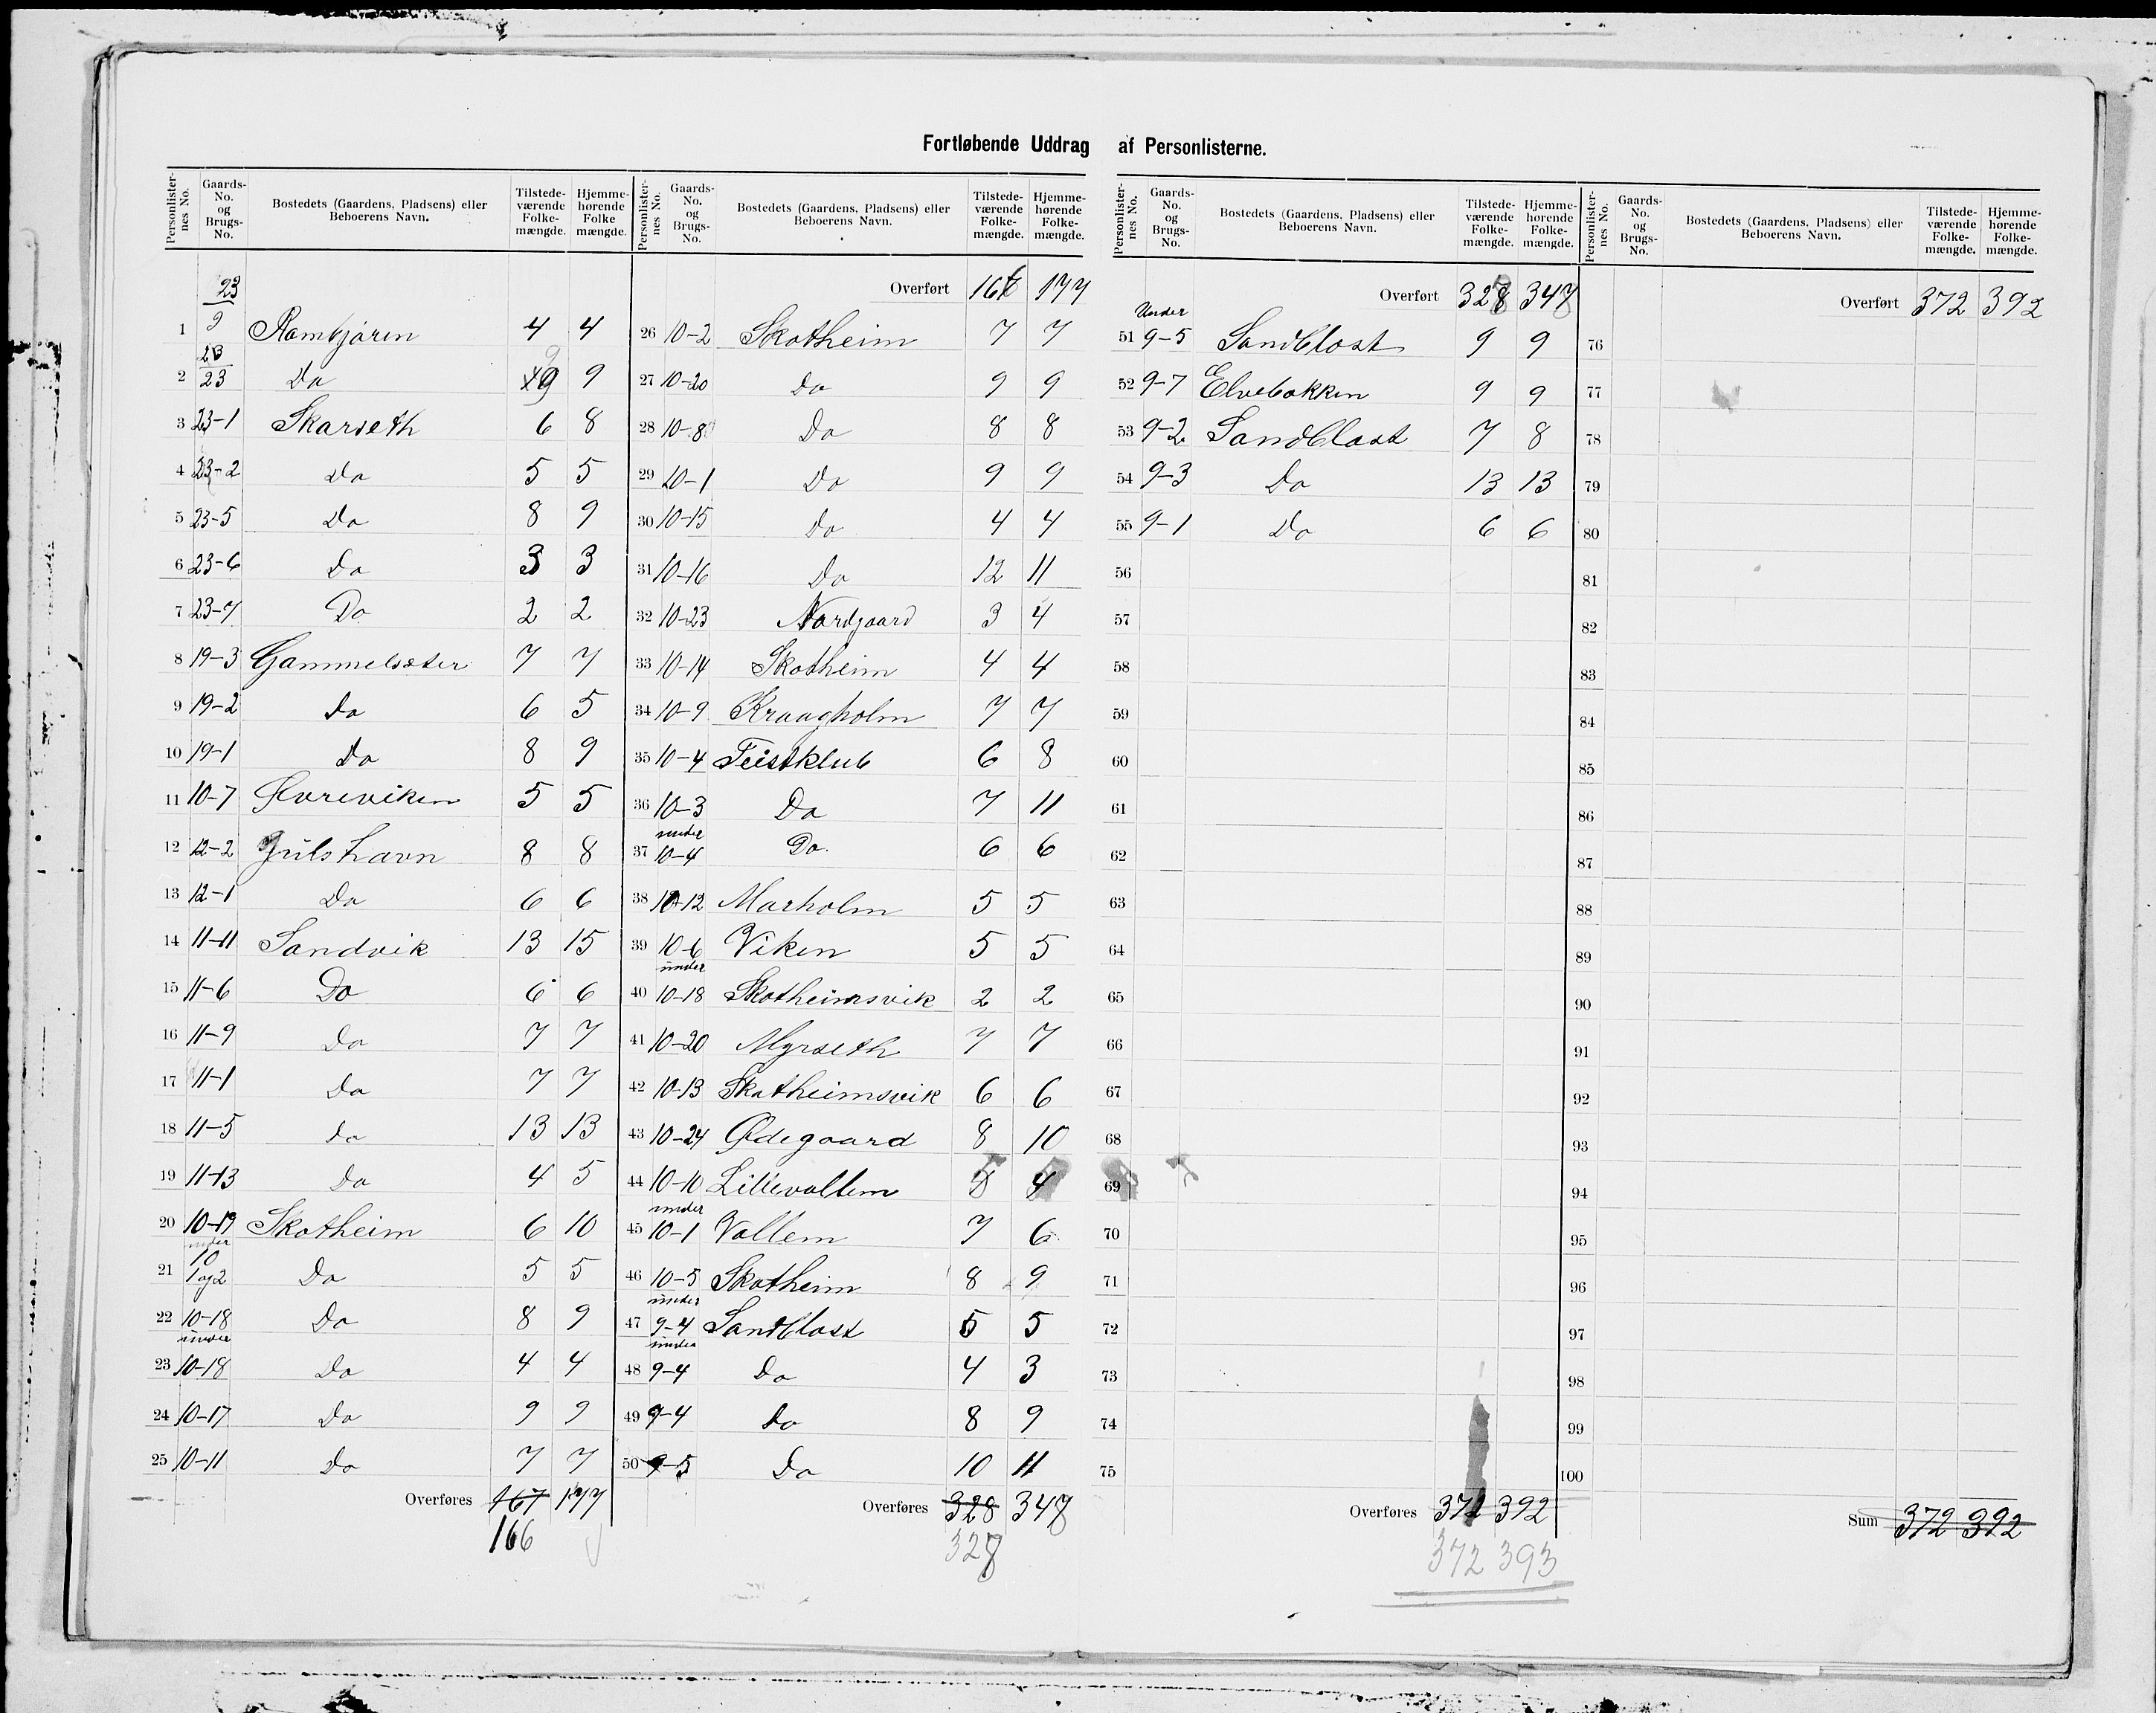 Fortløbende Uddrag af Personlisterne.
Personlisternes No. Gaards-No. og Brugs-No. Bostedets (Gaardens, Pladsens) eller Beboerens Navn. Tilstedeværende Folkemængde. Hjemmehørende Folke mængde.
23
1 9 Rambjøren 4 4
2 23 23 Do 9 9
3 23-1 Skarseth 6 8
4 23-2 Do 5 5
5 23-5 Do 8 9
6 23-6 Do 3 3
7 23-7 Do 2 2
8 19-3 Gammelsæter 7 7
9 19-2 do 6 5
10 19-1 Do 8 9
11 10-7 Øvreviken 5 5
12 12-2 Julshavn 8 8
13 12-1 Do 6 6
14 11-11 Sandvik 13 15
15 11-6 Do 6 6
16 11-9 Do 7 7
17 11-1 Do 7 7
18 11-5 do 13 13
19 11-13 do 4 5
20 10-19 Skotheim 6 10
under
21 10 1og2 Do 5 5
22 10-18 Do 8 9
under
23 10-18 Do 4 4
24 10-17 Do 9 9
25 10-11 Do 7 7
Overføres 167 177
166
Personlisternes No. Gaards-No. og Brugs-No. Bostedets (Gaardens, Pladsens) eller Beboerens Navn. Tilstedeværende Folkemængde. Hjemmehørende Folkemængde.
Overført 166 177
26 10-2 Skotheim 7 7
27 10-20 Do 9 9
28 10-8 Do 8 8
29 10-1 Do 9 9
30 10-15 Do 4 4
31 10-16 Do 12 11
32 10-23 Nordgaard 3 4
33 10-14 Skotheim 4 4
34 10-9 Kraagholm 7 7
35 10-4 Feistklub 6 8
36 10-3 Do 7 11
under
37 10-4 Do. 6 6
38 10-12 Marholm 5 5
39 10-6 Viken 5 5
under
40 10-18 Skotheimsvik 2 2
41 10-20 Myrseth 7 7
42 10-13 Skotheimsvik 6 6
43 10-24 Ødegaard 8 10
44 10-10 Lillevollem 5 4
under
45 10-1 Vollem 7 6
46 10-5 Skotheim 8 9
under
47 9-4 Sandblast 5 5
under
48 9-4 Do 4 3
49 9-4 do 8 9
50 9-5 Do 10 11
Overføres 328 348
328
Personlisternes No. Gaards-No. og Brugs-No. Bostedets (Gaardens, Pladsens) eller Beboerens Navn. Tilstedeværende Folkemængde. Hjemmehørende Folkemængde.
Overført 328 348
Under
51 9-5 Sandblast 9 9
52 9-7 Elvebakken 9 9
53 9-2 Sandblast 7 8
54 9-3 Do 13 13
55 9-1 Do 6 6
56
57
58
59
60
61
62
63
64
65
66
67
68
69
70
71
72
73
74
75
Overføres 372 392
372 393
Personlisternes No. Gaards-No. og Brugs-No. Bostedets (Gaardens, Pladsens) eller Beboerens Navn. Tilstedeværende Folkemængde. Hjemmehørende Folkemængde.
Overført 372 392
76
77
78
79
80
81
82
83
84
85
86
87
88
89
90
91
92
93
94
95
96
97
98
99
100
Sum 372 392